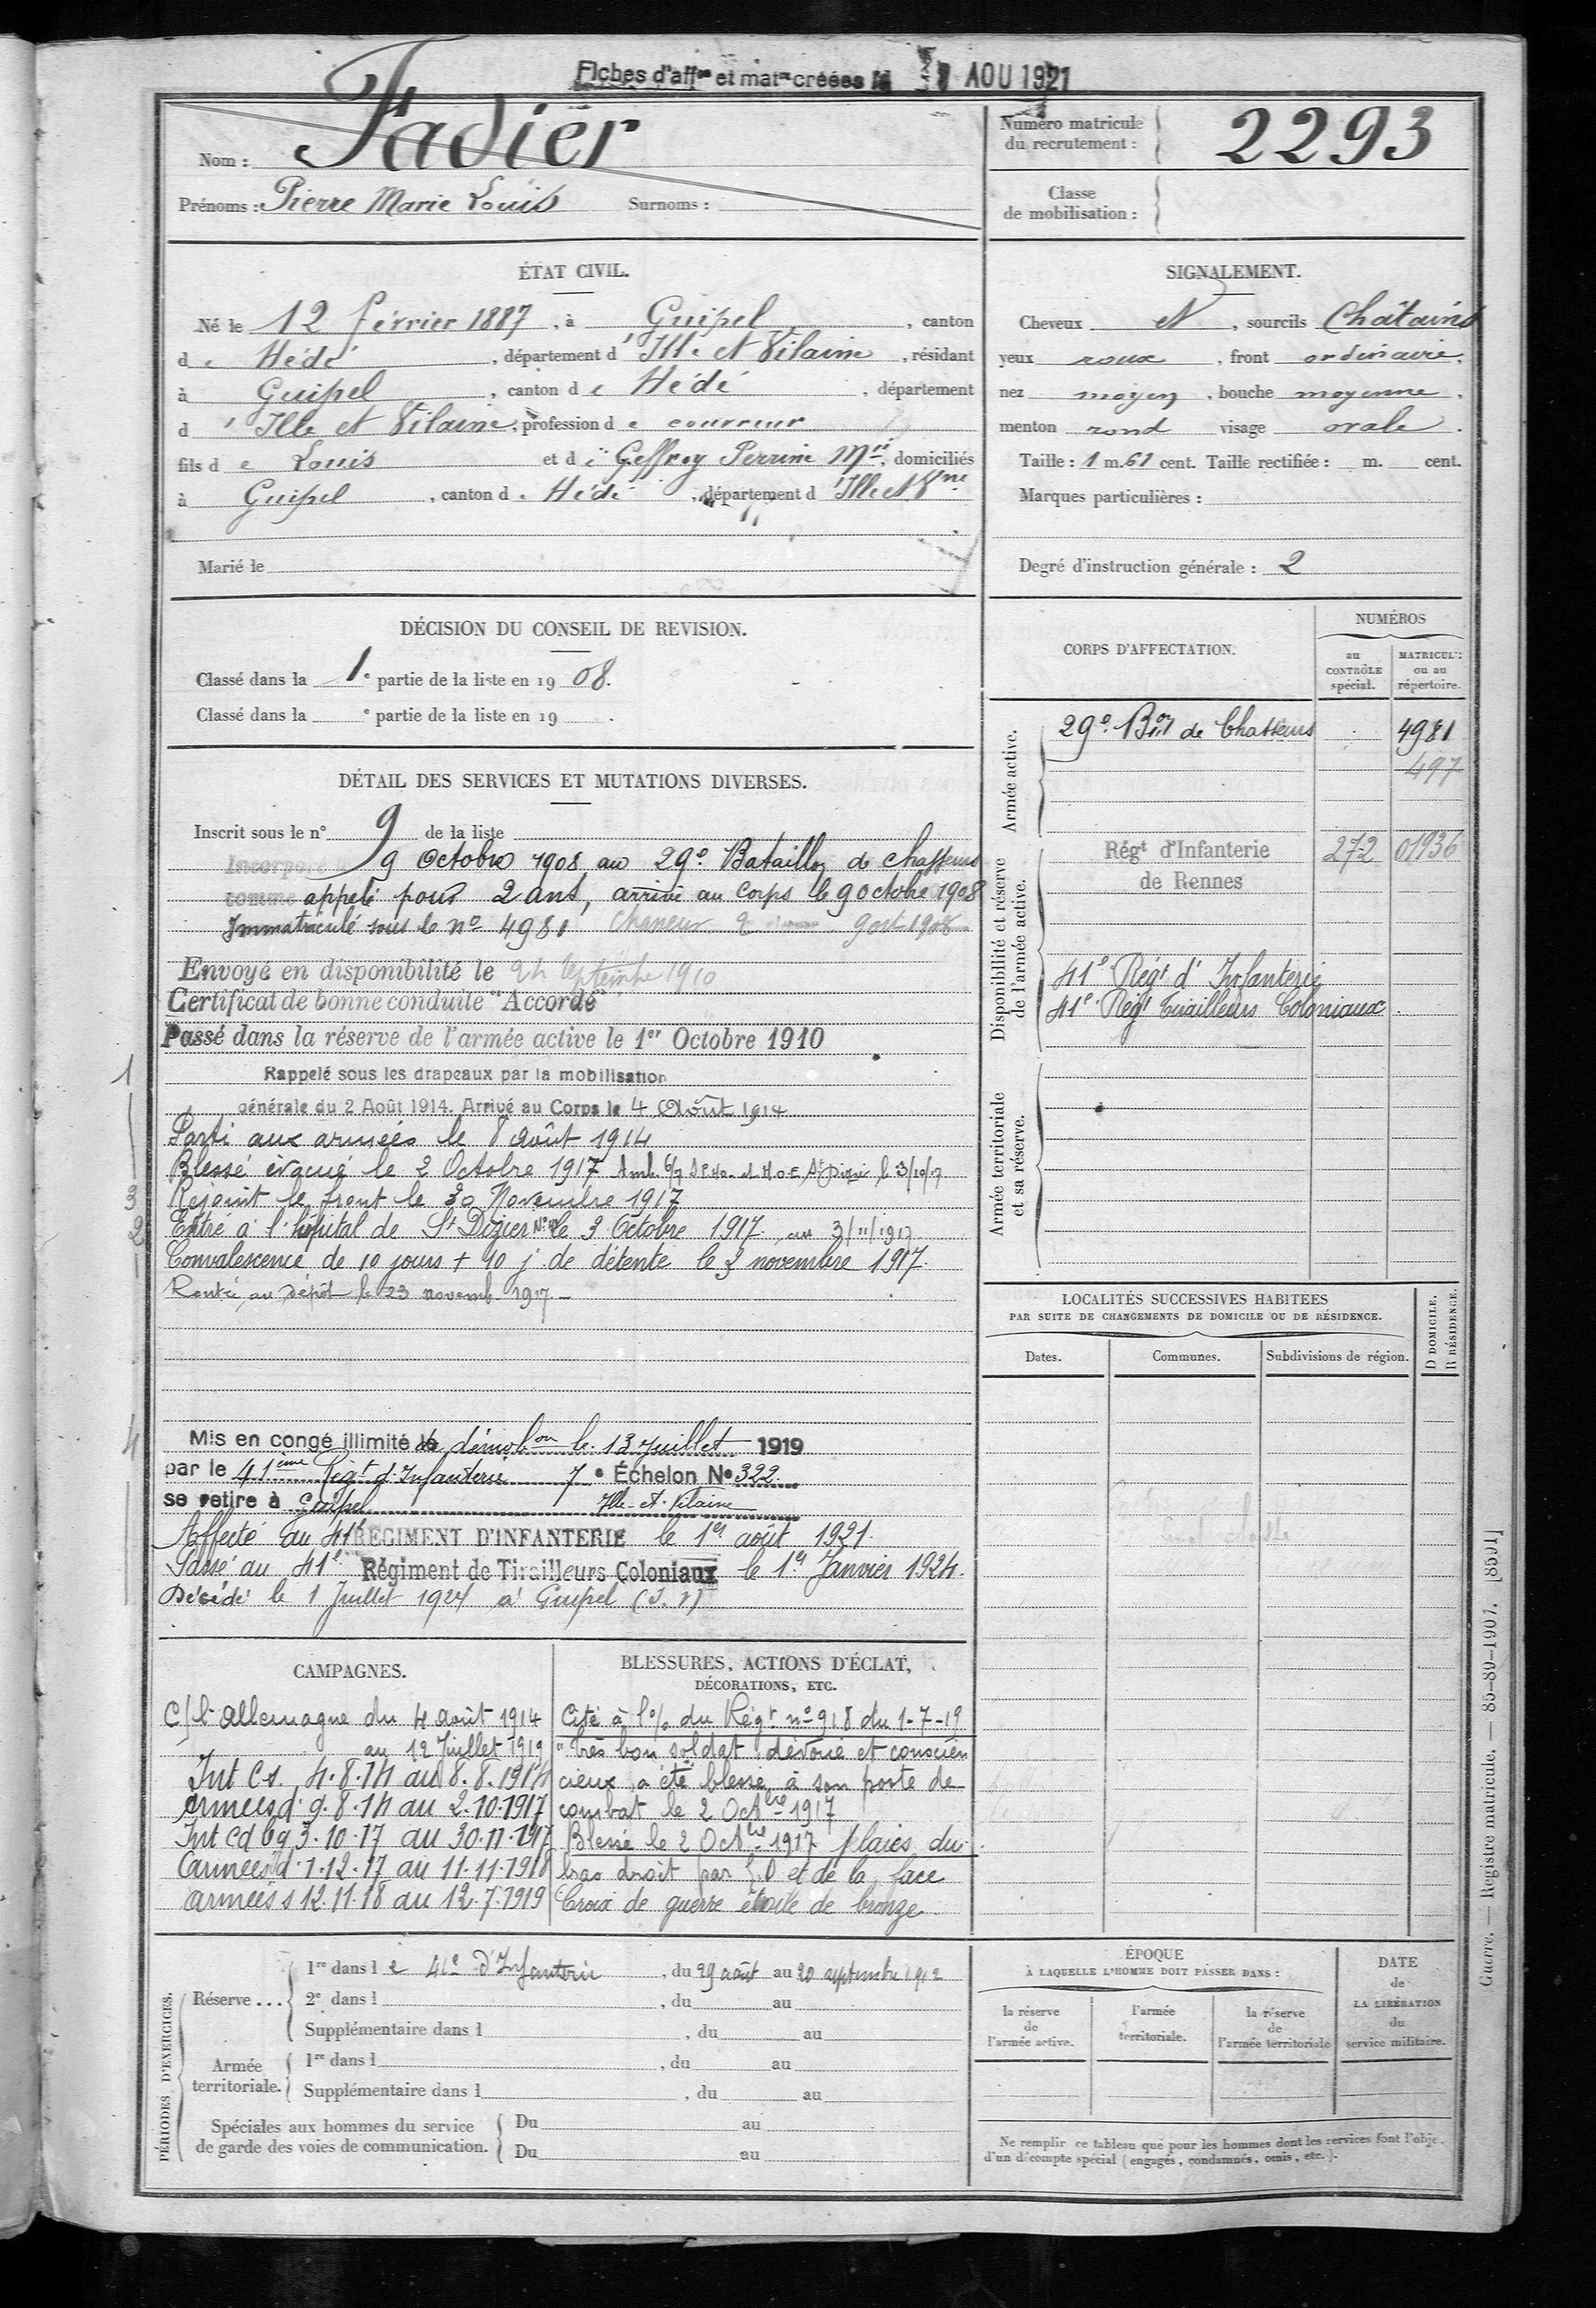 Fiches d'aff^on et mat^le créées le 1 AOU 1921
Nom : Fadier
Prénoms : Pierre Marie Louis Surnoms :
Numéro matricule
du recrutement : 2293
Classe
de mobilisation :
ÉTAT CIVIL.
Né le 12 février 1887, à Guipel, canton
de Hédé, département d'Ille et Vilaine, résidant
à Guipel, canton de Hédé, département
d'Ille et Vilaine, profession de couvreur
fils de Louis et de Geffroy Perrine M^rie, domiciliés
à Guipel, canton de Hédé, département d'Ille et V^ne
Marié le
SIGNALEMENT.
Cheveux et, sourcils Châtains
yeux roux, front ordinaire,
nez moyen, bouche moyenne,
menton rond visage ovale.
Taille : 1 m. 61 cent. Taille rectifiée : m. cent.
Marques particulières :
Degré d'instruction générale : 2
DÉCISION DU CONSEIL DE REVISION.
Classé dans la 1^e partie de la liste en 1908.
Classé dans la ^e partie de la liste en 19 .
DÉTAIL DES SERVICES ET MUTATIONS DIVERSES.
Inscrit sous le n° 9 de la liste
Incorporé 9 Octobre 1908, au 29^e Bataillon de chasseurs
comme appelé pour 2 ans, arrivé au corps le 9 octobre 1908
Immatriculé sous le n° 4981 Chasseur 2 9 oct 1908
Envoyé en disponibilité le 24 Septembre 1910
Certificat de bonne conduite "Accordé"
Passé dans la réserve de l'armée active le 1er Octobre 1910
1
Rappelé sous les drapeaux par la mobilisation
générale du 2 Août 1914. Arrivé au Corps le 4 Août 1914
Parti aux armées le 8 août 1914
Blessé évacué le 2 Octobre 1917 Amb. 6/7 et H.O.E. St Dizier le 3/10/17
3 Rejoint le front le 30 Novembre 1917
2 Entré à l'hôpital de St Dizier le 3 Octobre 1917 au 3/11/1917
Convalescence de 10 jours + 10 j. de détente le 3 novembre 1917.
Rentré au Dépôt le 23 novemb 1917.
4
Mis en congé illimité de démob^on le 13 Juillet 1919
par le 41^ème Rég^t d'Infanterie 7^e Échelon N° 322
se retire à Guipel Ille-et-Vilaine
Affecté au 41^e RÉGIMENT D'INFANTERIE le 1^er août 1921.
Passé au 41^e Régiment de Tirailleurs Coloniaux le 1^er Janvier 1924.
Décédé le 1 Juillet 1924 à Guipel (I.V)
CORPS D'AFFECTATION.
NUMÉROS
au
CONTRÔLE
spécial.
MATRICULE
ou au
répertoire.
Armée active.
29^e B^on de Chasseurs 4981
497
Disponibilité et réserve
de l'armée active.
Rég^t d'Infanterie
de Rennes 272 01936
41^e Rég^t d'Infanterie
41^e Rég^t Tirailleurs Coloniaux.
Armée territoriale
et sa réserve.
LOCALITÉS SUCCESSIVES HABITÉES
PAR SUITE DE CHANGEMENTS DE DOMICILE OU DE RÉSIDENCE.
Dates.
Communes.
Subdivisions de région.
D DOMICILE.
R RÉSIDENCE.
CAMPAGNES.
C/ l'Allemagne du 4 août 1914
au 12 Juillet 1919
Int Cs. 4.8.14 au 8.8.1914
Armées d. 9.8.14 au 2.10.1917
Int Cd bg 3.10.17 au 30.11.1917
armées d. 1.12.17 au 11.11.1918
armées s 12.11.18 au 12.7.1919
BLESSURES, ACTIONS D'ÉCLAT,
DÉCORATIONS, ETC.
Cité à l'o/o du Rég^t n° 918 du 1-7-19
"très bon soldat dévoué et conscien
cieux, a été blessé à son poste de
combat le 2 Oct^bre 1917
Blessé le 2 Oct^bre 1917 plaies du
bras droit par E.O et de la face
Croix de guerre étoile de bronze.
PÉRIODES D'EXERCICES.
Réserve ...
1re dans le 41^e d'Infanterie, du 29 août au 20 septembre 1912
2e dans l , du au
Supplémentaire dans l , du au
Armée
territoriale.
1re dans l , du au
Supplémentaire dans l , du au
Spéciales aux hommes du service
de garde des voies de communication.
Du au
Du au
ÉPOQUE
À LAQUELLE L'HOMME DOIT PASSER DANS :
la réserve
de
l'armée active.
l'armée
territoriale.
la réserve
de
l'armée territoriale
DATE
de
LA LIBÉRATION
du
service militaire.
Ne remplir ce tableau que pour les hommes dont les services font l'obje.
d'un décompte spécial (engagés, condamnés, omis, etc.).
Guerre. — Registre matricule. — 85-89-1907. [8591]